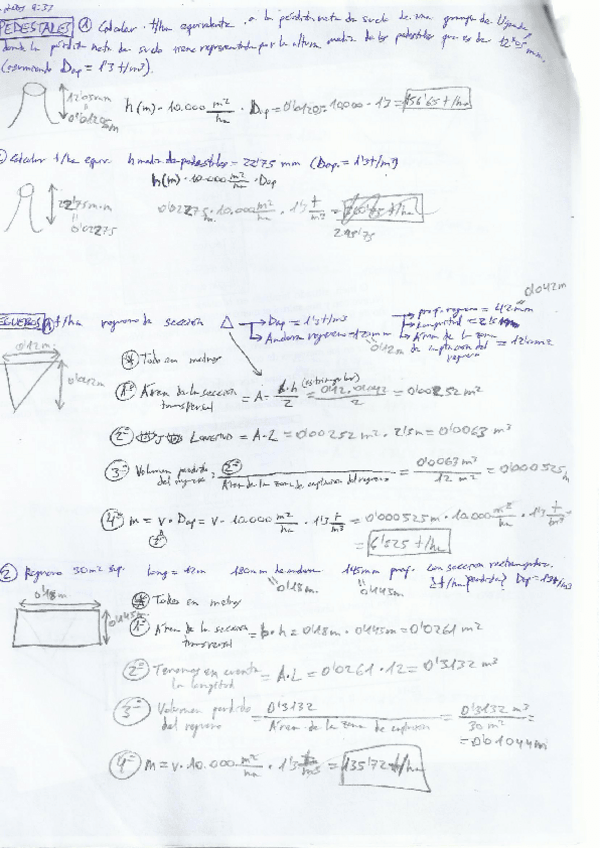 PEDESTALES ① Calcular t/ha equivalente a la pérdida neta de suelo de una granja de Uganda,
donde la pérdida neta de suelo viene representada por la altura media de los pedestales que es de 12'05 mm.
(asumiendo Dap = 1'3 t/m³).
12'05mm
0'01205m
h(m) · 10.000 m²/ha · Dap = 0'01205 · 10000 · 1'3 = 156'65 t/ha
Calcular t/ha equiv. h media de pedestales = 22'75 mm (Dap = 1'3 t/m³)
h(m) · 10.000 m²/ha · Dap
22'75mm
0'02275
0'02275 m · 10.000 m²/ha · 1'3 t/m³ =
295'75
0'042m
REGUEROS ① t/ha reguero de sección △ → Dap = 1'3 t/m³ → prof. reguero = 42mm
→ Anchura reguero = 12 mm → Longitud = 2'5m
0'12m → Área de la zona de captación del reguero = 12m²
0'12m
0'042m
* Todo en metros
1º Área de la sección transversal = A = b·h/2 (es triangular) = 0'12 · 0'042/2 = 0'00252 m²
2º Longitud = A·L = 0'00252 m² · 2'5m = 0'0063 m³
3º Volumen perdido del reguero = 2º/Área de la zona de captación del reguero = 0'0063 m³/12 m² = 0'000525 m
4º m = v · Dap = v · 10.000 m²/ha · 1'3 t/m³ = 0'000525m · 10.000 m²/ha · 1'3 t/m³
3º
= 6'825 t/ha
② Reguero 30m² sup. Long = 12m 180mm de anchura 145mm prof. con sección rectangular.
0'18m. 0'145m ¿t/ha perdida? Dap = 1'3 t/m³
0'18m
0'145m
* Todos en metros
1º Área de la sección transversal = b·h = 0'18m · 0'145m = 0'0261 m²
2º Tenemos en cuenta la longitud = A·L = 0'0261 · 12 = 0'3132 m³
3º Volumen perdido del reguero = 0'3132/Área de la zona de = 0'3132 m³/30 m² =
= 0'01044m
4º m = v · 10.000 m²/ha · 1'3 t/m³ = 135'72 t/ha